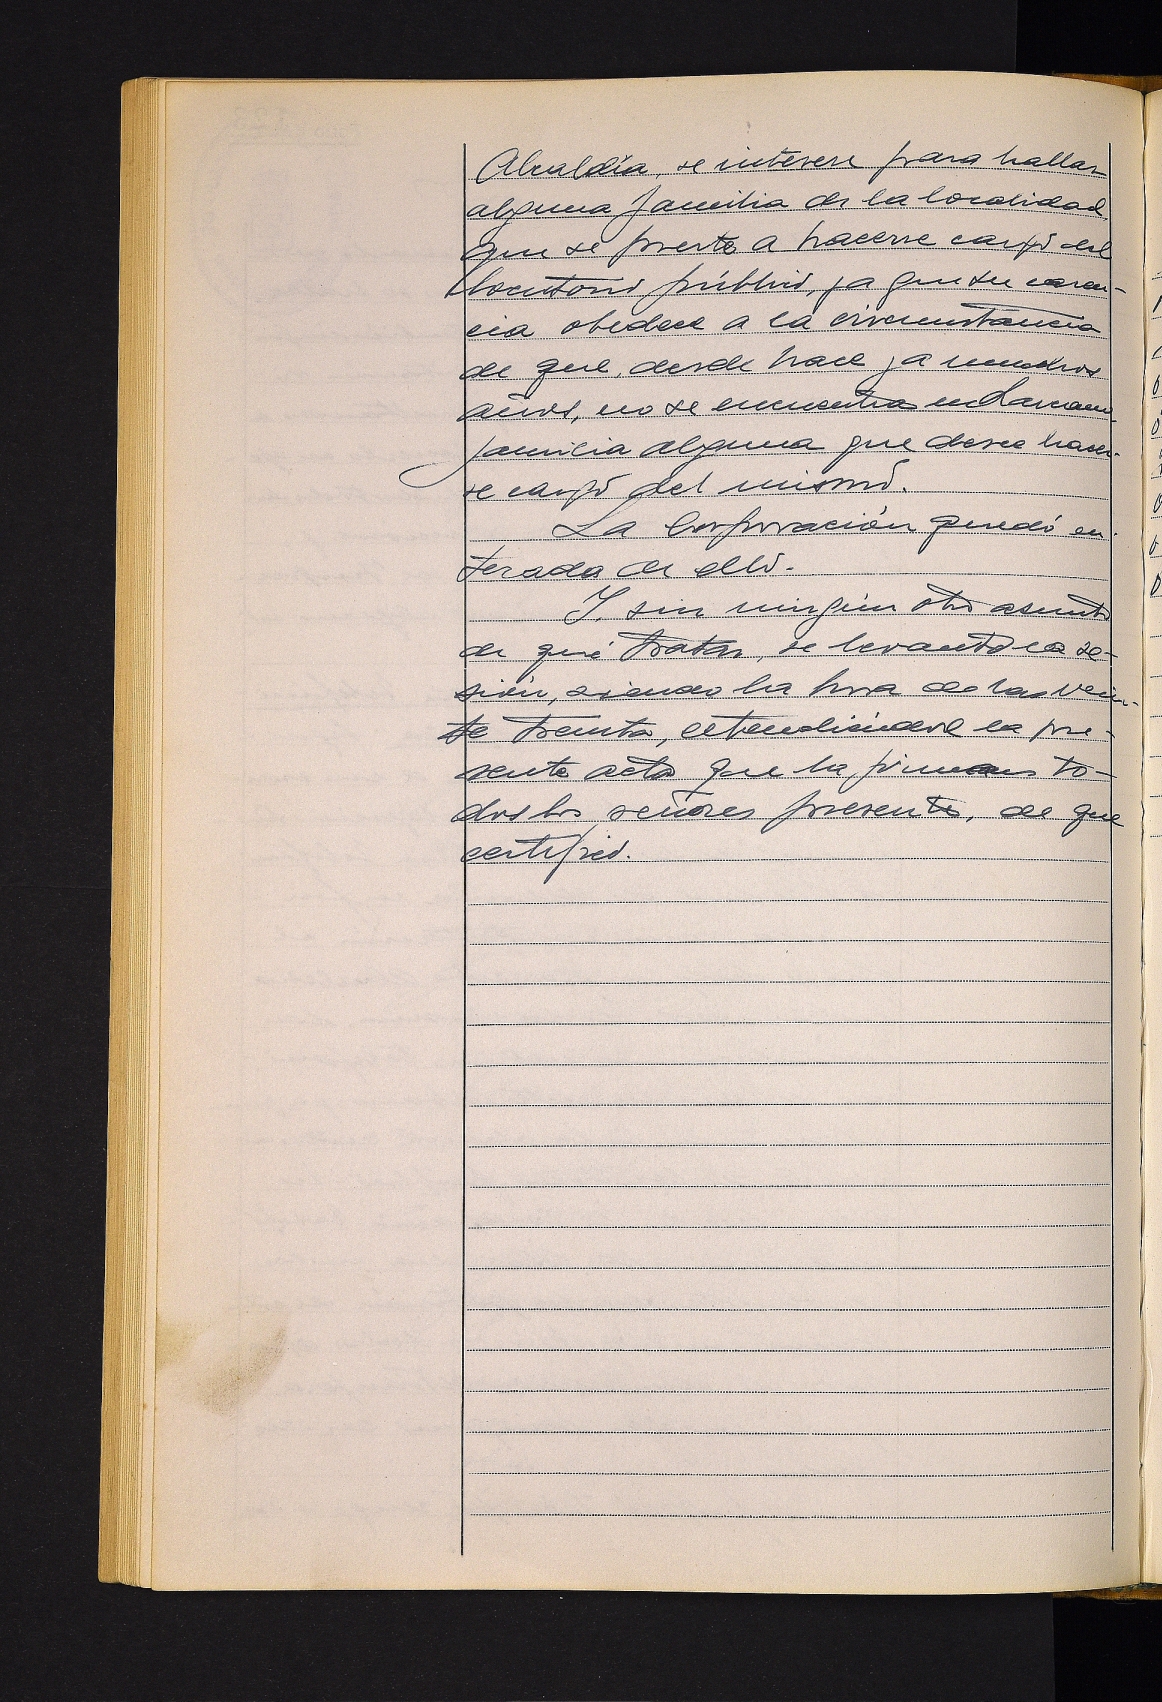 Alcaldía, se interese para hallar
alguna familia de la localidad,
que se preste a hacerse cargo del
locutorio público, ya que su caren-
cia obedece a la circunstancia
de que, desde hace ya muchos
años, no se encuentra en
familia alguna que desee hacer-
se cargo del mismo.
La Corporación quedó en-
terada de ello.
Y, sin ningún otro asunto
de qué tratar, se levantó la se-
sión, siendo la hora de las vein-
te treinta, extendiéndose la pre-
sente acta que la firman to-
dos los señores presentes, de que
certifico.